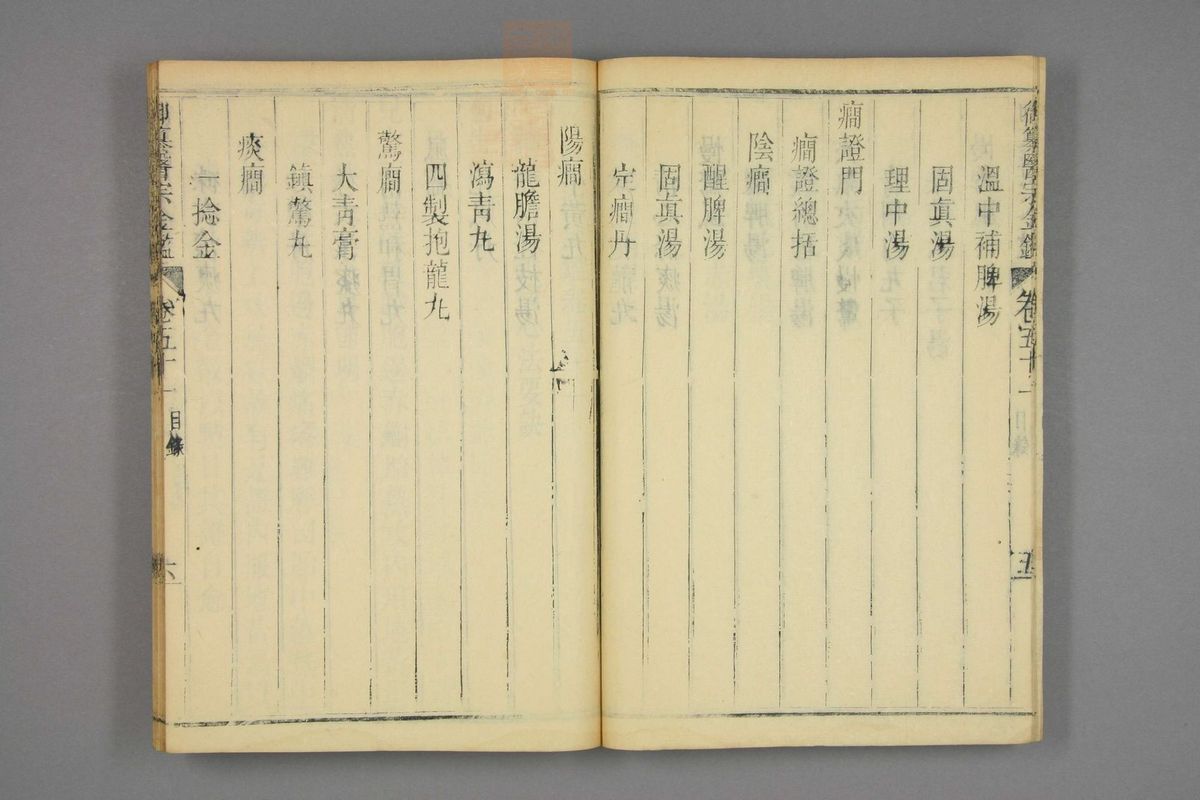 御纂醫宗金鑑 卷五十一 目錄 五
溫中補脾湯
固眞湯
理中湯
癎證門
癎證總括
陰癎
醒脾湯
固眞湯
定癎丹
陽癎
龍膽湯
瀉青丸
四製抱龍丸
驚癎
大青膏
鎮驚丸
痰癎
一捻金
御纂醫宗金鑑 卷五十一 目錄 六